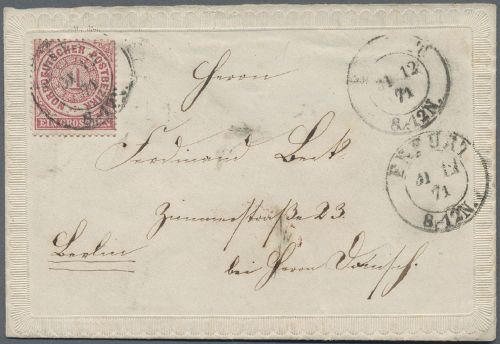 NORDDEUTSCHER POSTBEZIRK
EIN GROSCHEN
31
71
8-12N.
31 12
71
8-12N.
31 12
71
8-12N.
Herrn
Ferdinand Beck.
Zimmerstraße 23.
Berlin
bei Herrn